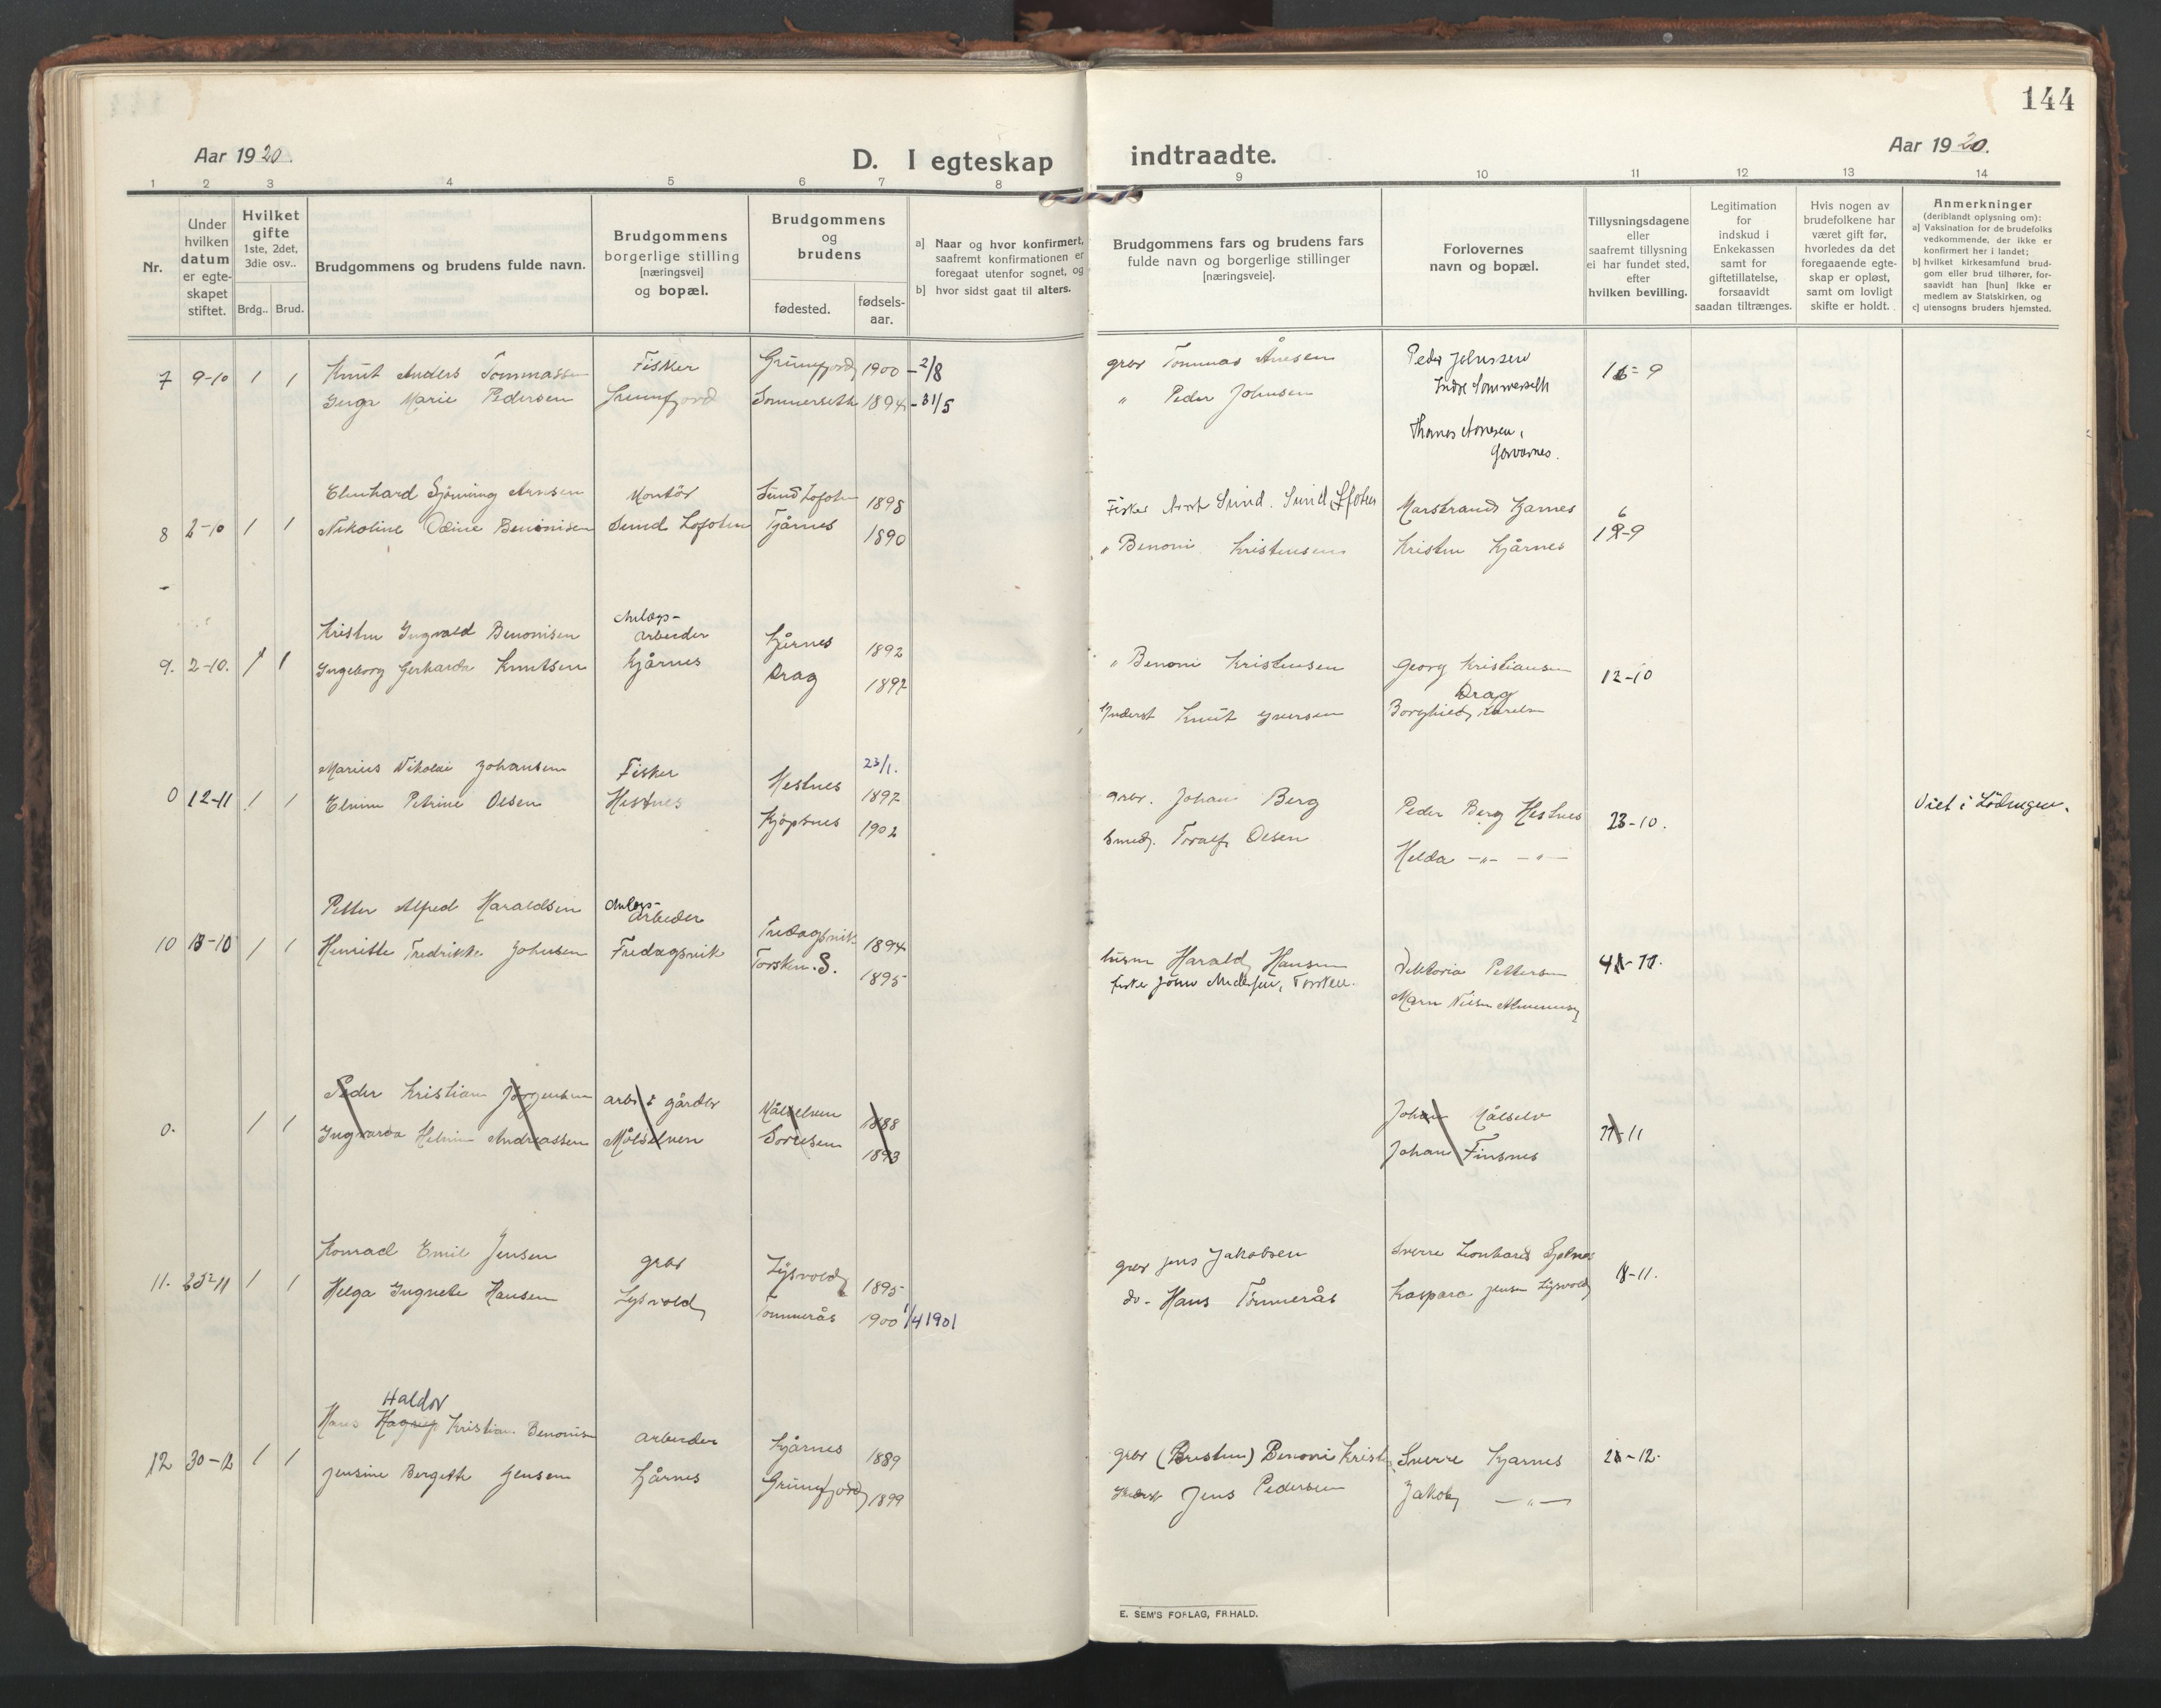 144
Aar 1920.
D. I egteskap indtraadte.
Aar 1920.
1 2 3 4 5 6 7 8 9 10 11 12 13 14
Nr.
Under
hvilken
datum
er egte-
skapet
stiftet.
Hvilket
gifte
1ste, 2det,
3die osv..
Brdg.. Brud.
Brudgommens og brudens fulde navn.
Brudgommens
borgerlige stilling
[næringsvei]
og bopæl.
Brudgommens
og
brudens
fødested.
fødsels-
aar.
a] Naar og hvor konfirmert,
saafremt konfirmationen er
foregaat utenfor sognet, og
b] hvor sidst gaat til alters.
Brudgommens fars og brudens fars
fulde navn og borgerlige stillinger
[næringsveie].
Forlovernes
navn og bopæl.
Tillysningsdagene
eller
saafremt tillysning
ei har fundet sted,
efter
hvilken bevilling.
Legitimation
for
indskud i
Enkekassen
samt for
giftetillatelse,
forsaavidt
saadan tiltrænges.
Hvis nogen av
brudefolkene har
været gift før,
hvorledes da det
foregaaende egte-
skap er opløst,
samt om lovligt
skifte er holdt.
Anmerkninger
(deriblandt oplysning om):
a] Vaksination for de brudefolks
vedkommende, der ikke er
konfirmert her i landet;
b] hvilket kirkesamfund brud-
gom eller brud tilhører, for-
saavidt han [hun] ikke er
medlem av Statskirken, og
c] utensogns bruders hjemsted.
7 9-10 1 1 Knut Anders Tommassen Fisker 1900 - 2/8
Marie Pedersen Sommerseth 1894 - 31/5
gbr Tommas
" Peder Johnsen
Peder Johnsen
Indre Sommerseth
-9
Arnesen
Sund Lofoten 1898
Montör
8 2-10 1 1 Nikoline Odine Benonisen Sund Lofoten Kjårnes 1890
Fisker Sund. Sund Lofoten
" Benoni Kristensen
Marstrand Kjarnes
Kristen Kjårnes
-9
Kristen Ingvald Benonisen Anlægs-
arbeider
Kjårnes 1892
9. 2-10. 1 1 Ingeborg Gerharda Knutsen Kjårnes Drag 1897
" Benoni Kristensen
Inderst Knut Iversen
Georg Kristiansen
Drag
12-10
Marius Nikolai Johansen Fisker Hestnes 23/1.
1897
0 12-11 1 1 Petrine Olsen Hestnes Kjöpsnes 1902
gbr. Johan Berg
Smed. Toralf Olsen
Peder Berg Hestnes
Helda -"- -"-
23-10.
Viet i Lödingen.
Petter Alfred Haraldsen Anlægs-
arbeider
Fredagsvik 1894
10 -10 1 1 Henritte Fredrikke Johnsen Fredagsvik Torsken. S. 1895
Harald Hansen
fisker Torsken.
Viktoria Pettersen
Peder Kristian Jörgensen arb. i gårder Målselven 1888
0. 1 1 Ingvarda Andreassen Målselven Sörreisen 1893
Johan Målselv
Johan Finsnes
-11
Konrad Emil Jensen gbr Lysvold 1895
11. 1 1 Helga Ingnete Hansen Lysvold Tömmerås 1900 1/4 1901
gbr Jens Jakobsen
do - Hans Tömmerås
Sverre Leonhard
Kaspara Jensen Lysvold
-11.
Haldor
Hans Kristian Benonisen arbeider Kjårnes 1889
12 30-12 1 1 Jensine Bergeth Jensen Kjårnes Grunfjord 1899
gbr Benoni Krist
Inderst Jens Pedersen
Sverre Kjarnes
Jakob -"-
-12.
E. SEM'S FORLAG, FR.HALD.